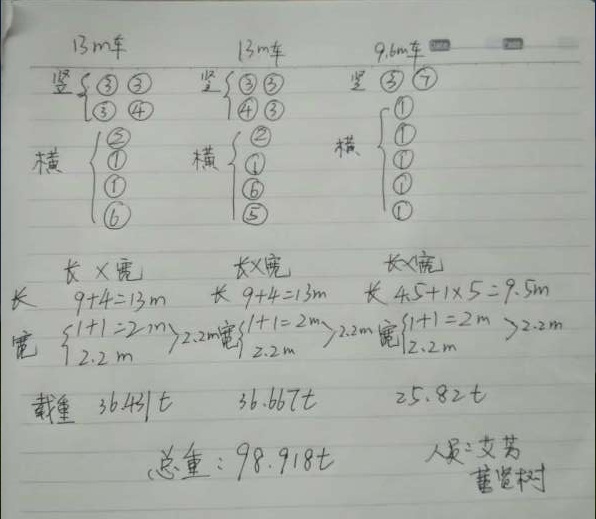 13m车 13m车 9.6m车
竖 ③ ③ 竖 ③ ③ 竖 ③ ⑦
③ ④ ④ ③ ①
横 ② 横 ② 横 ①
① ① ①
① ⑥ ①
⑥ ⑤ ①
长×宽 长×宽 长×宽
长 9+4=13m 长 9+4=13m 长 4.5+1×5=9.5m
宽 1+1=2m >2.2m 宽 1+1=2m >2.2m 宽 1+1=2m >2.2m
2.2m 2.2m 2.2m
载重 36.431t 36.667t 25.82t
总重:98.918t 人员:艾芳
董贤树